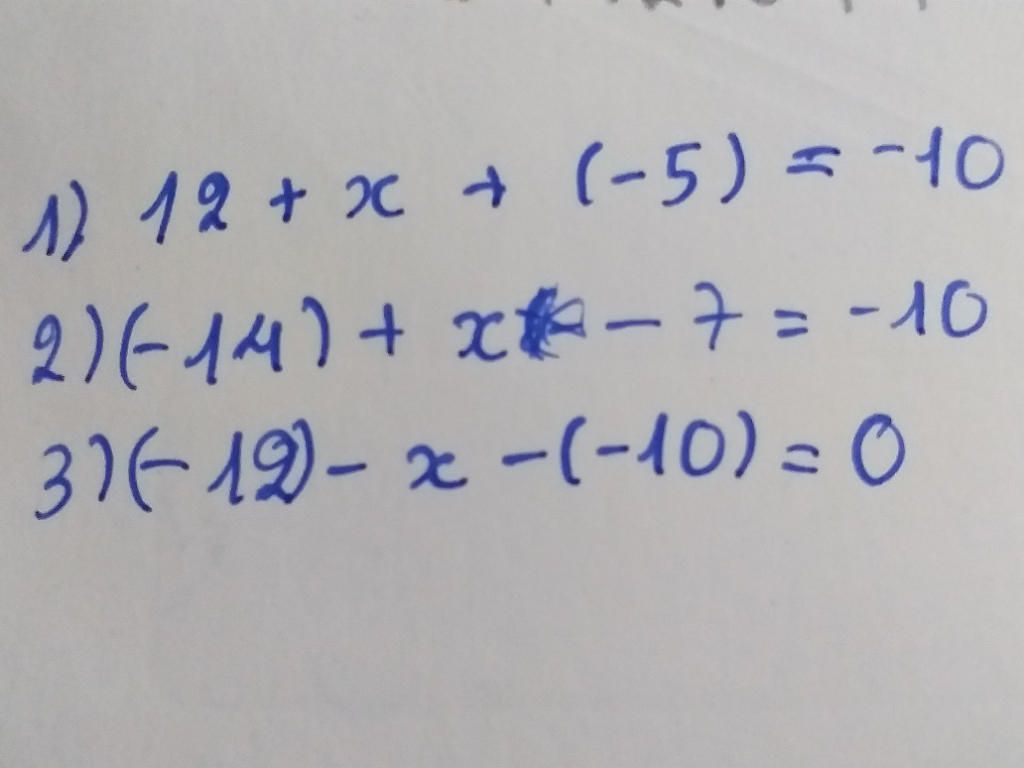 1) 12 + x + (-5) = -10
2) (-14) + x - 7 = -10
3) (-12) - x - (-10) = 0